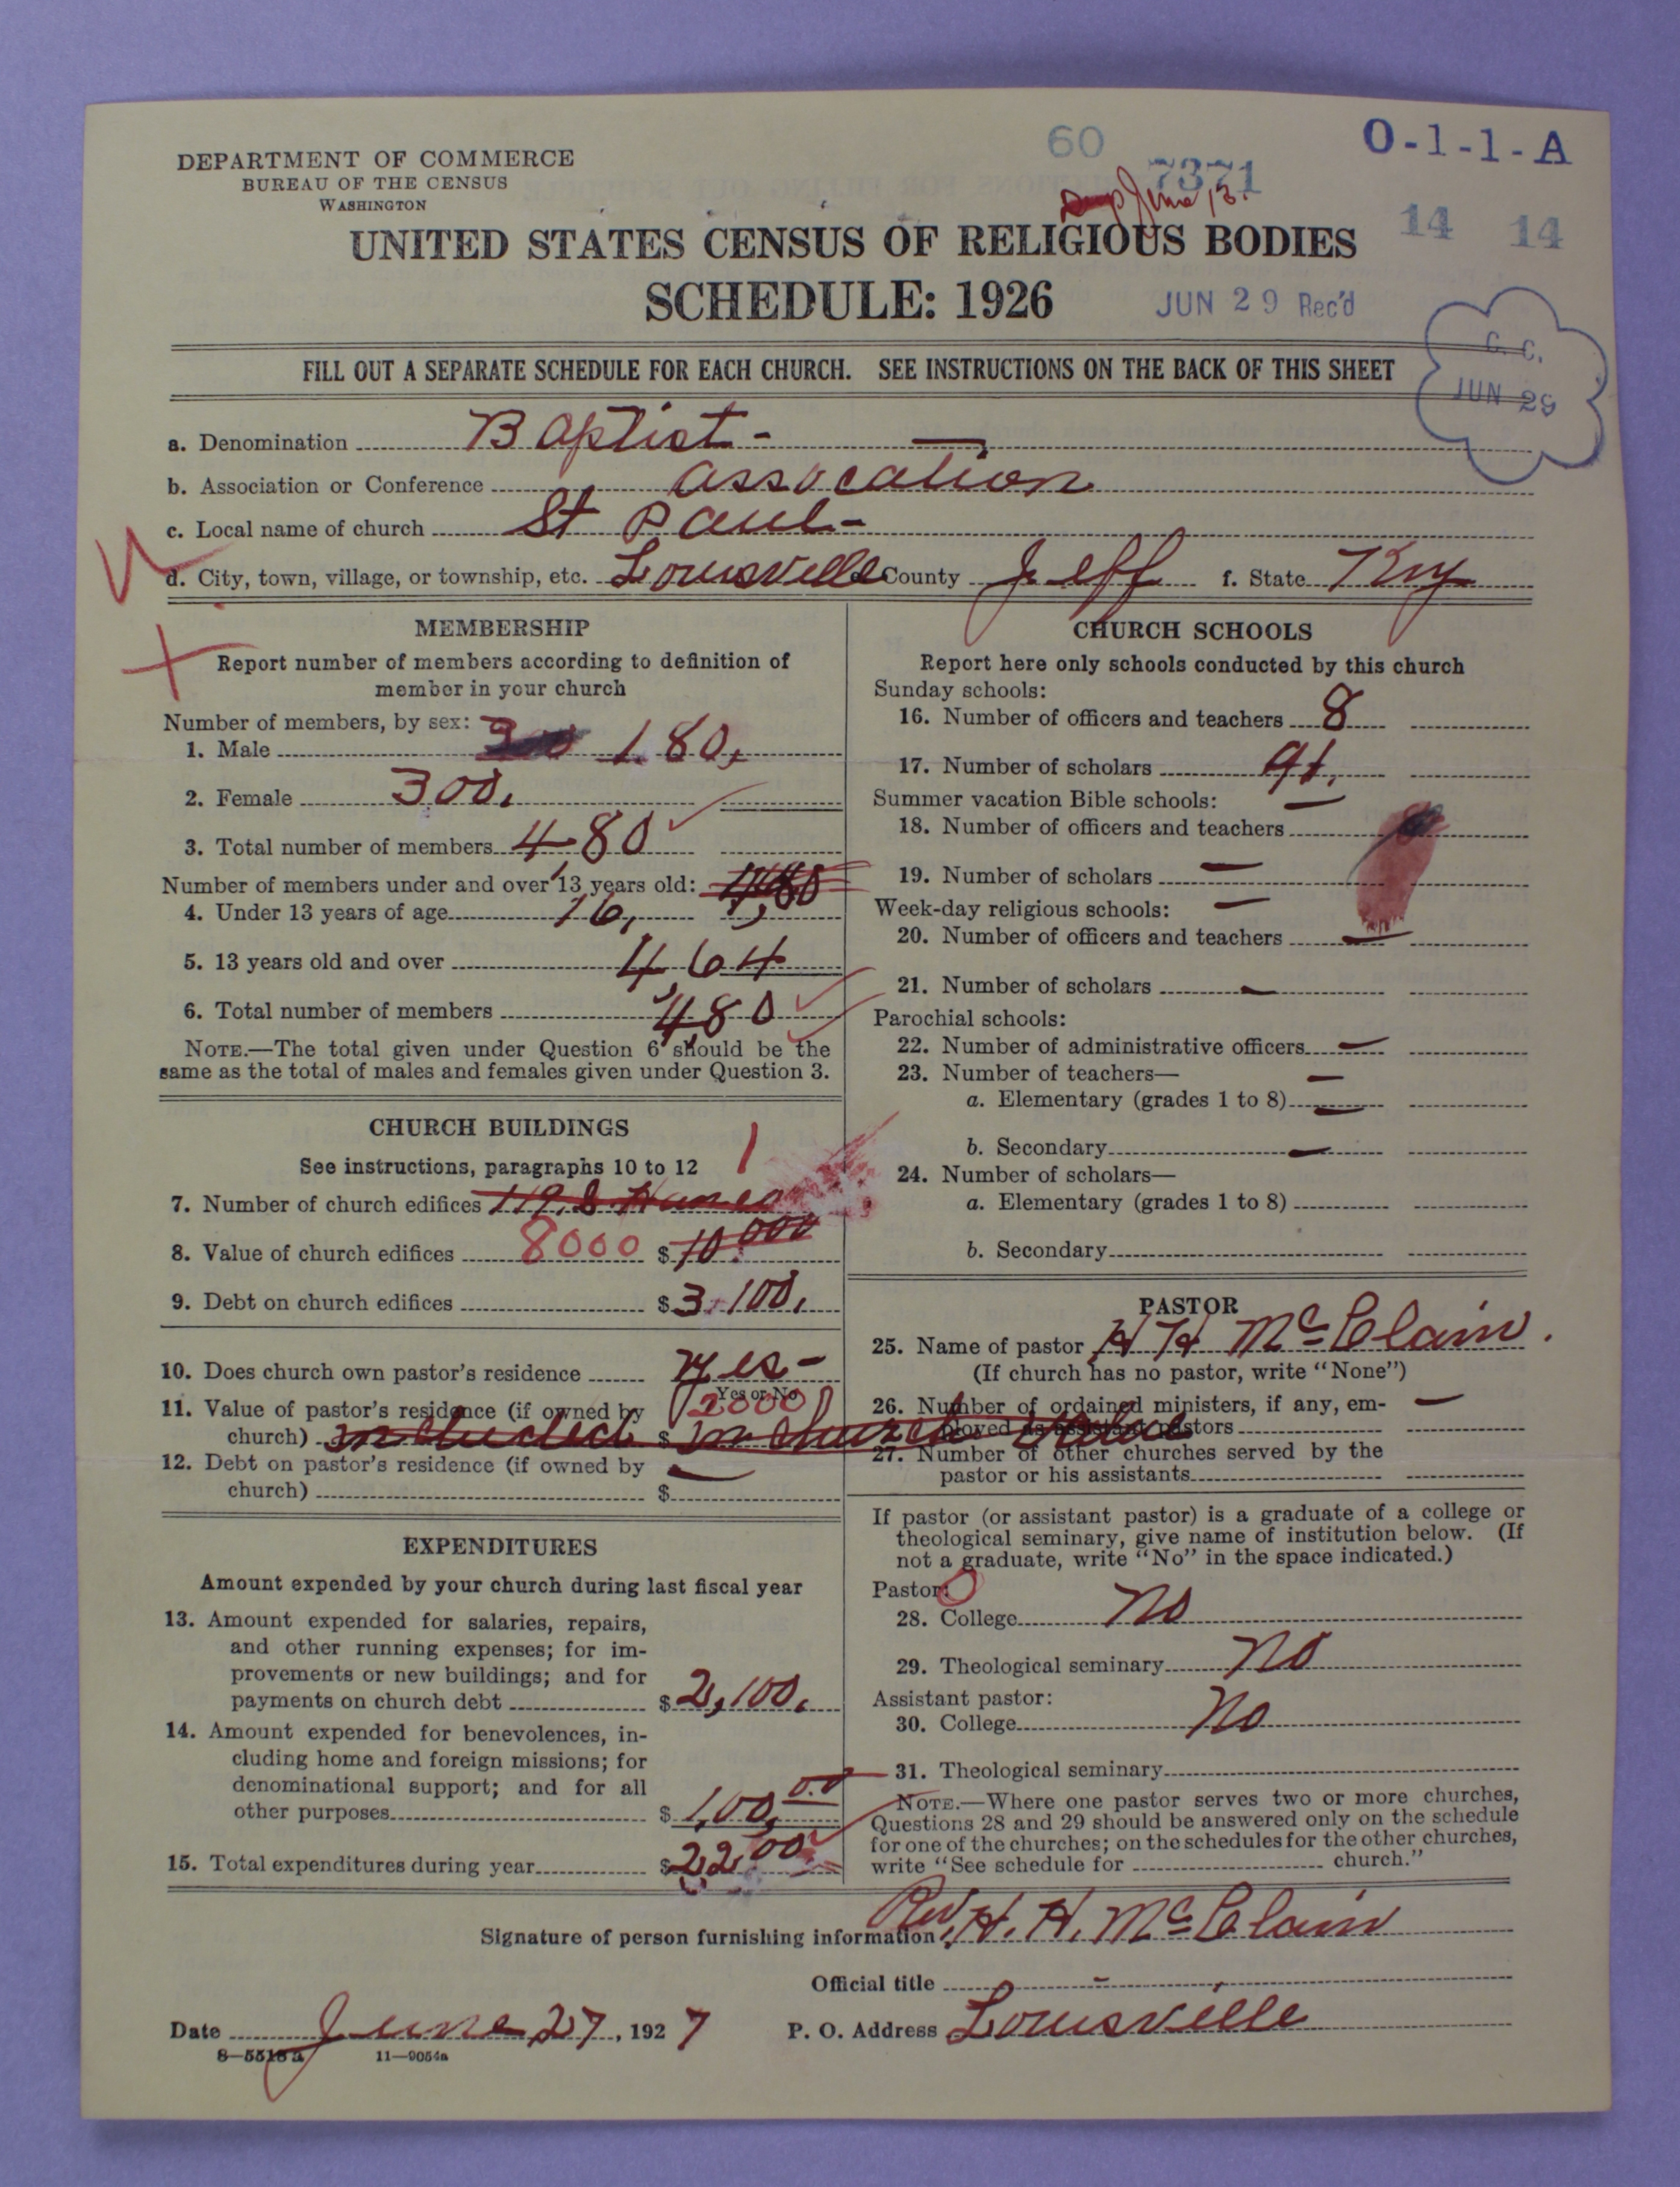 DEPARTMENT OF COMMERCE
BUREAU OF THE CENSUS
WASHINGTON
60
7371
O-1-1-A
June 13.
14 14
UNITED STATES CENSUS OF RELIGIOUS BODIES
SCHEDULE: 1926
JUN 29 Rec'd
C. C.
JUN 29
FILL OUT A SEPARATE SCHEDULE FOR EACH CHURCH. SEE INSTRUCTIONS ON THE BACK OF THIS SHEET
a. Denomination Baptist -
b. Association or Conference assocation
c. Local name of church St Paul -
d. City, town, village, or township, etc. Louisville County Jeff f. State Ky
MEMBERSHIP
Report number of members according to definition of
member in your church
Number of members, by sex:
1. Male 180,
2. Female 300,
3. Total number of members 480
Number of members under and over 13 years old: 480
4. Under 13 years of age 16,
5. 13 years old and over 464
6. Total number of members 480
NOTE.—The total given under Question 6 should be the
same as the total of males and females given under Question 3.
CHURCH BUILDINGS
See instructions, paragraphs 10 to 12 1
7. Number of church edifices
8. Value of church edifices 8000 $ 10.000
9. Debt on church edifices $ 3,100,
10. Does church own pastor's residence yes -
Yes or No
11. Value of pastor's residence (if owned by 2000
church) included $ in church value
12. Debt on pastor's residence (if owned by —
church) $
EXPENDITURES
Amount expended by your church during last fiscal year
13. Amount expended for salaries, repairs,
and other running expenses; for im-
provements or new buildings; and for
payments on church debt $ 2,100.
14. Amount expended for benevolences, in-
cluding home and foreign missions; for
denominational support; and for all
other purposes $ 1,00, 00
15. Total expenditures during year $ 2,2,00
CHURCH SCHOOLS
Report here only schools conducted by this church
Sunday schools:
16. Number of officers and teachers 8
17. Number of scholars 91,
Summer vacation Bible schools: —
18. Number of officers and teachers
19. Number of scholars —
Week-day religious schools: —
20. Number of officers and teachers —
21. Number of scholars —
Parochial schools:
22. Number of administrative officers —
23. Number of teachers— —
a. Elementary (grades 1 to 8) —
b. Secondary —
24. Number of scholars—
a. Elementary (grades 1 to 8)
b. Secondary
PASTOR
25. Name of pastor H H McClain.
(If church has no pastor, write "None")
26. Number of ordained ministers, if any, em- —
ployed as assistant pastors
27. Number of other churches served by the
pastor or his assistants
If pastor (or assistant pastor) is a graduate of a college or
theological seminary, give name of institution below. (If
not a graduate, write "No" in the space indicated.)
Pastor: 0
28. College No
29. Theological seminary No
Assistant pastor:
30. College No
31. Theological seminary
NOTE.—Where one pastor serves two or more churches,
Questions 28 and 29 should be answered only on the schedule
for one of the churches; on the schedules for the other churches,
write "See schedule for church."
Signature of person furnishing information Rev. H. H. McClain
Official title -
Date June 27, 1927 P. O. Address Louisville
8—5518 a 11—9054a